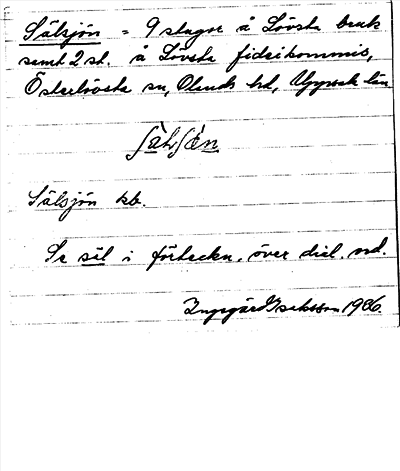 Sälsjön = 9 stugor å Lövsta bruk
samt 2 st. å Lövsta fideikommis,
Österlövsta sn, Olands hd, Uppsala län
Sälsjön kb.
Se säl i förteckn. över dial. ord.
Ingegärd Isaksson 1926.